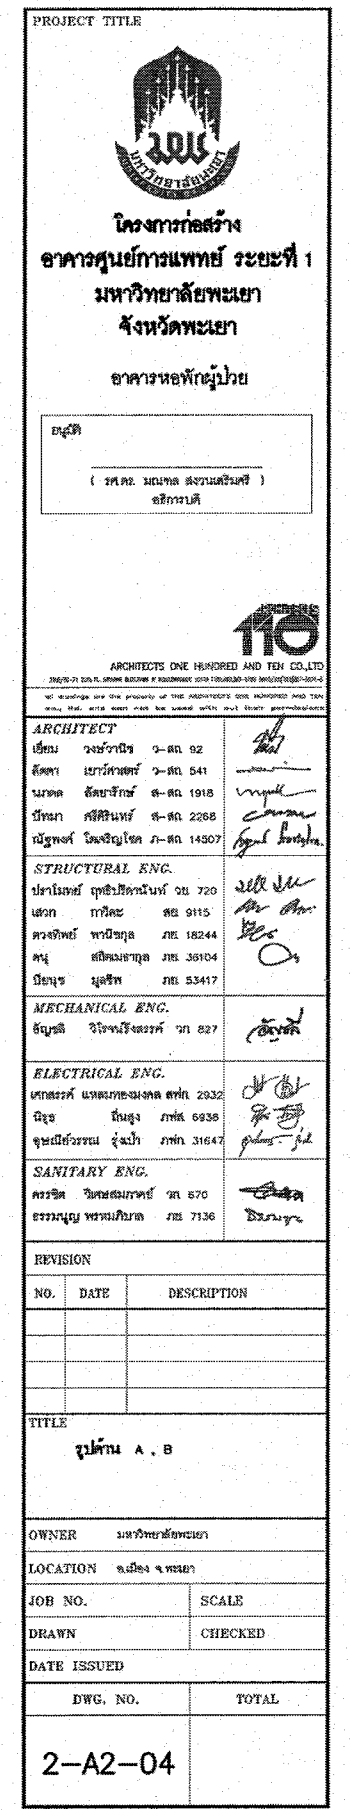 PROJECT TITLE
มหาวิทยาลัยพะเยา
โครงการก่อสร้าง
อาคารศูนย์การแพทย์ ระยะที่ 1
มหาวิทยาลัยพะเยา
จังหวัดพะเยา
อาคารหอพักผู้ป่วย
อนุมัติ
( รศ.ดร. มณฑล สงวนเสริมศรี )
อธิการบดี
110
ARCHITECTS ONE HUNDRED AND TEN CO.,LTD
ARCHITECT
เยี่ยม วงษ์วานิช ว-สถ. 92
ลัดดา เยาว์ศาสตร์ ว-สถ. 541
ส-สถ. 1918
ปัทมา ศรีศิรินทร์ ส-สถ. 2268
ณัฐพงศ์ โตเจริญโชค ภ-สถ. 14507
STRUCTURAL ENG.
ปราโมทย์ ฤทธิปรีดานันท์ วย. 720
เสวก กาวีตะ สย. 9115
ดวงทิพย์ พานิชกุล ภย. 18244
ดนุ ภย. 36104
ปิยนุช มูลรัพ ภย. 53417
MECHANICAL ENG.
ธัญชลี วิโรจน์รังสรรค์ วก. 827
ELECTRICAL ENG.
เศกสรรค์ แหลมทองมงคล สฟก. 2932
นิรุธ ถิ่นสูง ภฟก. 6936
รุ่งเป้า ภฟก. 31647
SANITARY ENG.
ครรชิต วิเศษสมภาคย์ วก. 670
ธรรมนูญ พรหมภิบาล ภย. 7136
REVISION
NO. DATE DESCRIPTION
TITLE
รูปด้าน A , B
OWNER มหาวิทยาลัยพะเยา
LOCATION อ.เมือง จ.พะเยา
JOB NO. SCALE
DRAWN CHECKED
DATE ISSUED
DWG. NO. TOTAL
2-A2-04